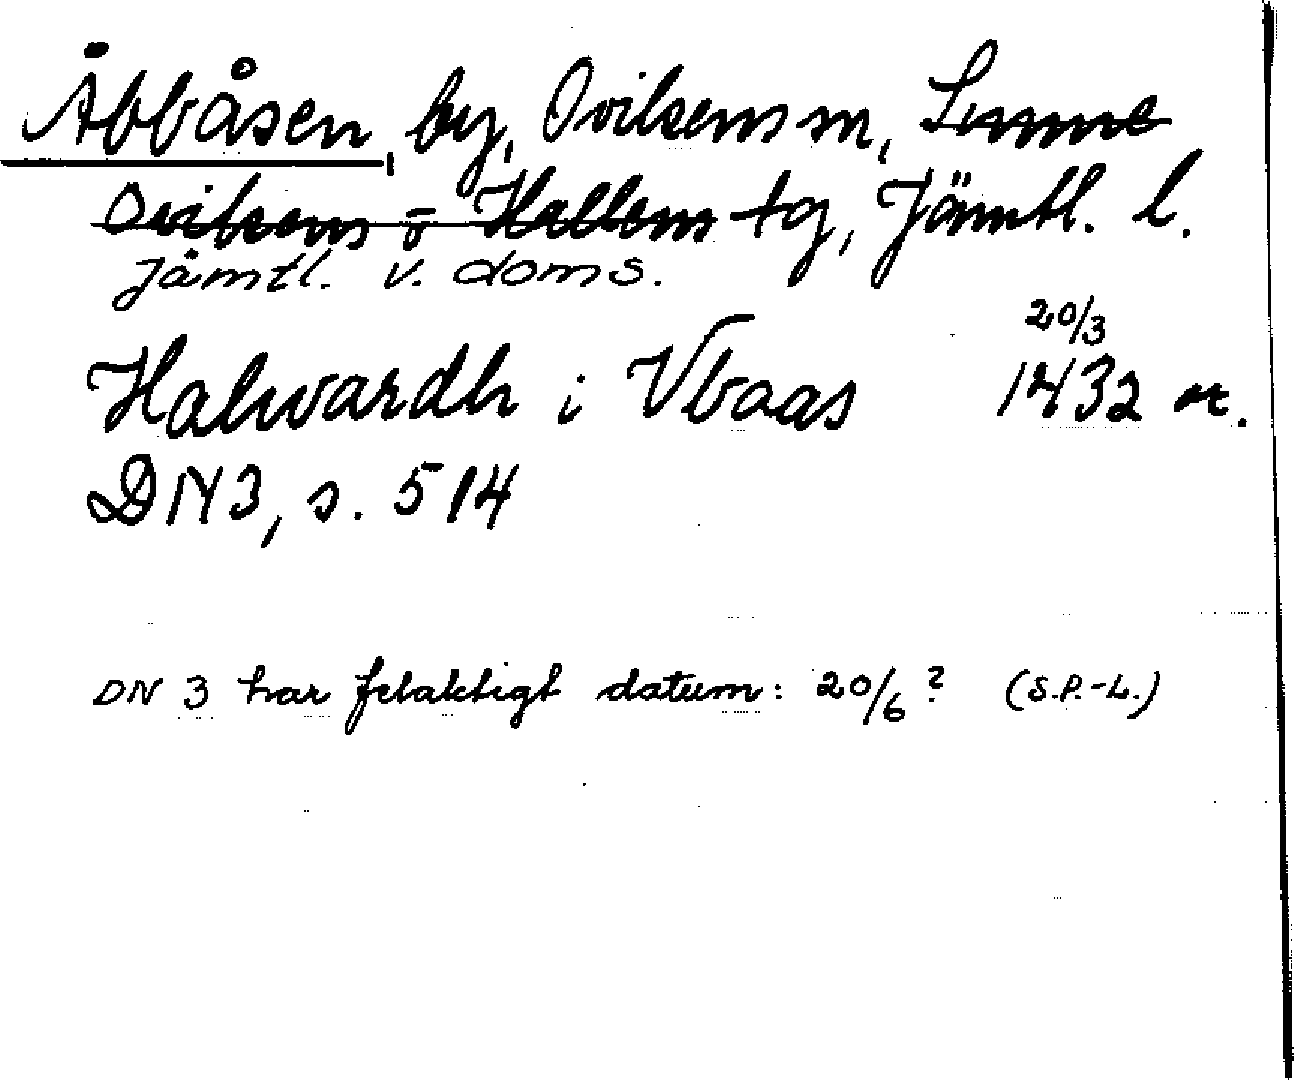 Åbbåsen, by, Ovikens sn, Sunne
Ovikens o Hallens tg, Jämtl. l.
Jämtl. v. doms.
20/3
Halwardh i Vbaas 1432 or.
DN 3, s. 514
DN 3 har felaktigt datum: 20/6? (S.P.-L.)